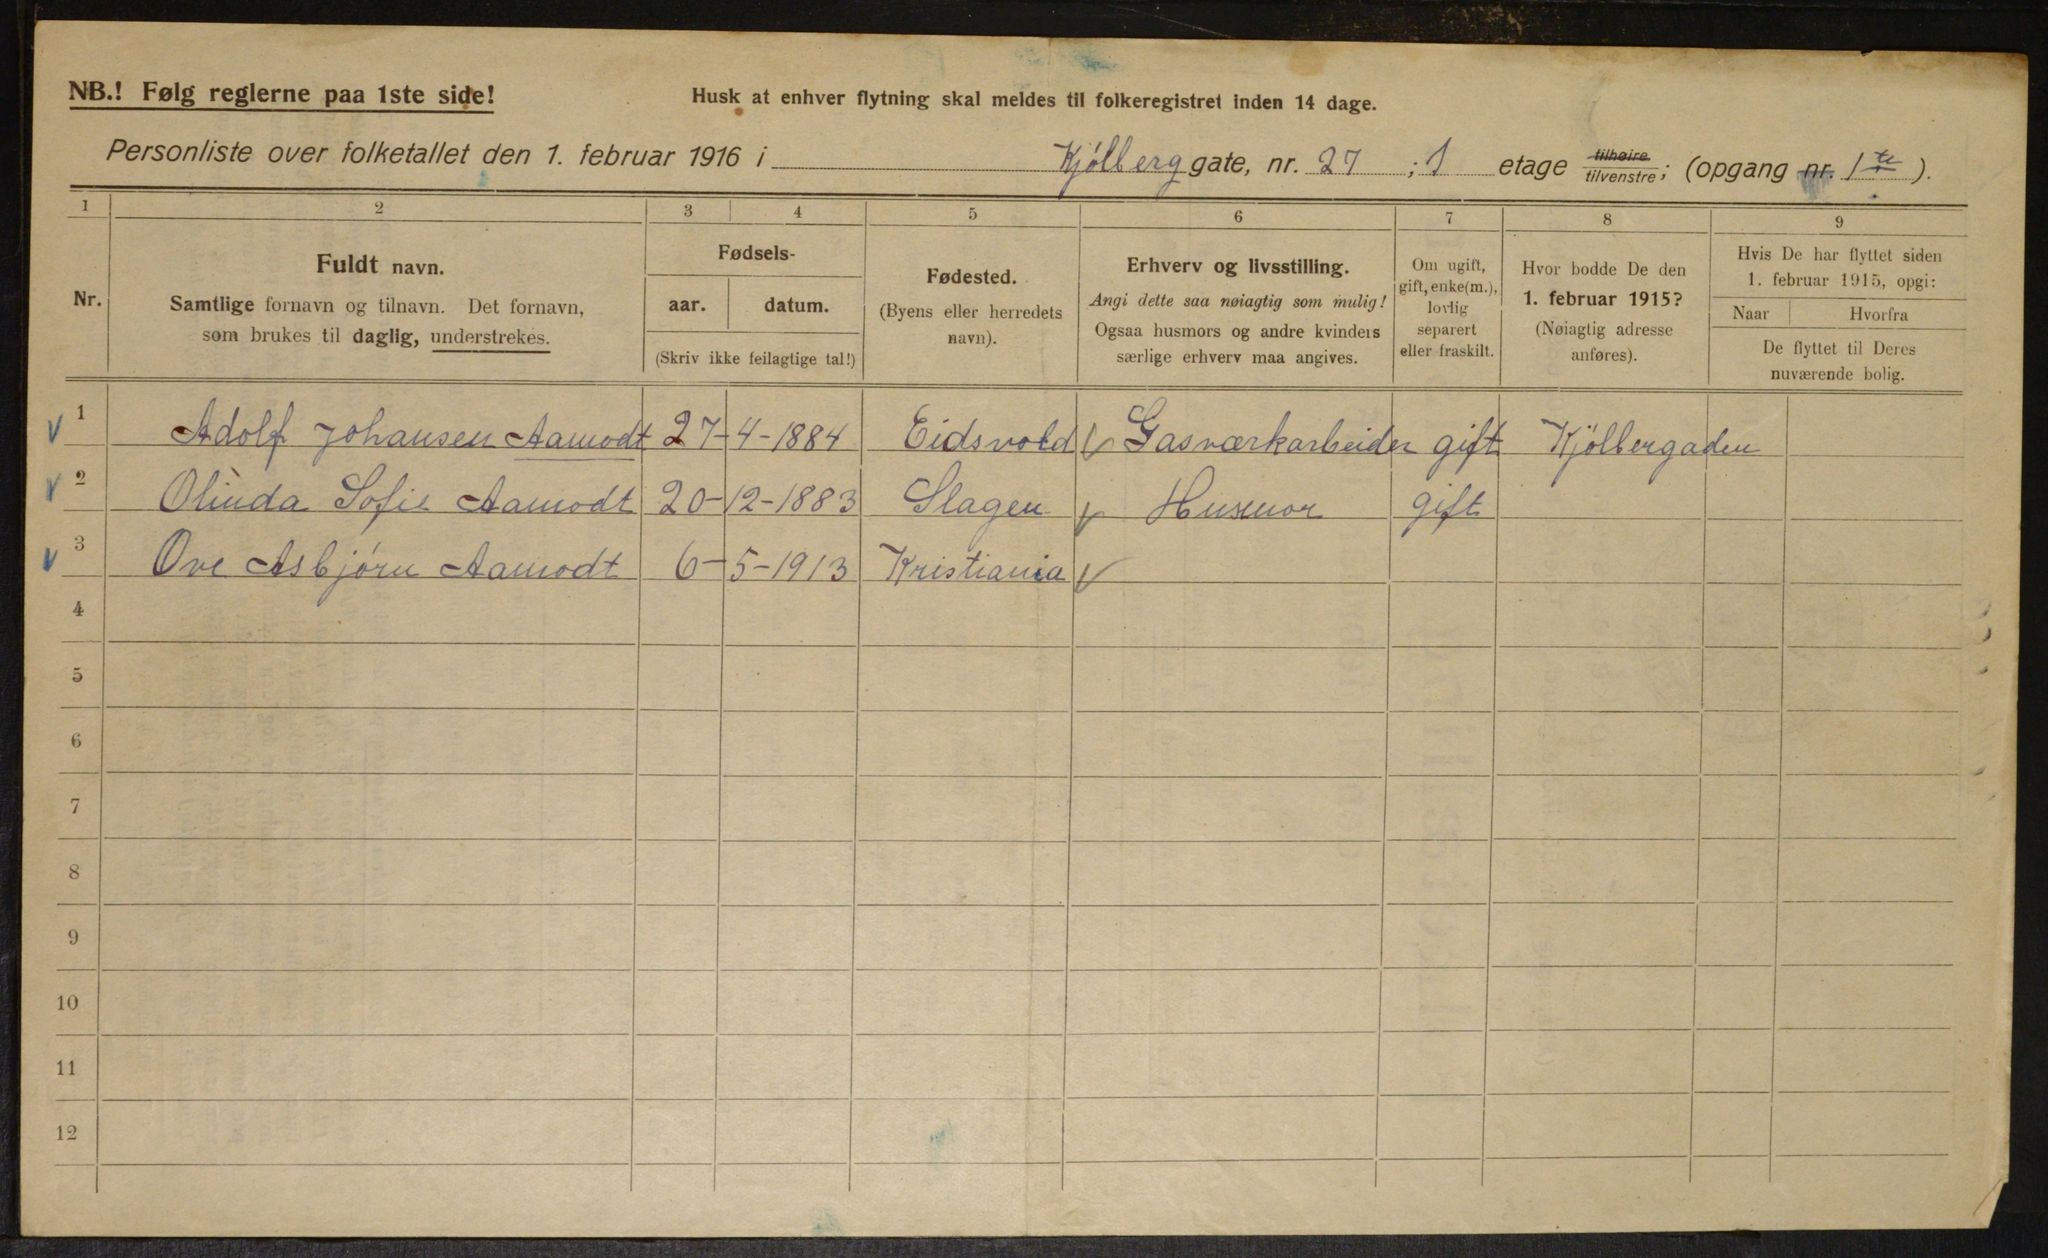 NB.! Følg reglerne paa 1ste side!
Husk at enhver flytning skal meldes til folkeregistret inden 14 dage.
Personliste over folketallet den 1. februar 1916 i Kjølberg gate, nr. 27 ; 1 etage tilhøire/tilvenstre; (opgang nr. 1ste).
1 2 3 4 5 6 7 8 9
Nr.
Fuldt navn.
Samtlige fornavn og tilnavn. Det fornavn,
som brukes til daglig, understrekes.
Fødsels-
aar. datum.
(Skriv ikke feilagtige tal!)
Fødested.
(Byens eller herredets
navn).
Erhverv og livsstilling.
Angi dette saa nøiagtig som mulig!
Ogsaa husmors og andre kvinders
særlige erhverv maa angives.
Om ugift,
gift, enke(m.),
lovlig
separert
eller fraskilt.
Hvor bodde De den
1. februar 1915?
(Nøiagtig adresse
anføres).
Hvis De har flyttet siden
1. februar 1915, opgi:
Naar Hvorfra
De flyttet til Deres
nuværende bolig.
1 Adolf Johansen Aamodt 27-4-1884 Eidsvold Gasværkarbeider gift Kjølbergaden
2 Olinda Sofie Aamodt 20-12-1883 Slagen Husmor gift
3 Ove Asbjørn Aamodt 6-5-1913 Kristiania
4
5
6
7
8
9
10
11
12